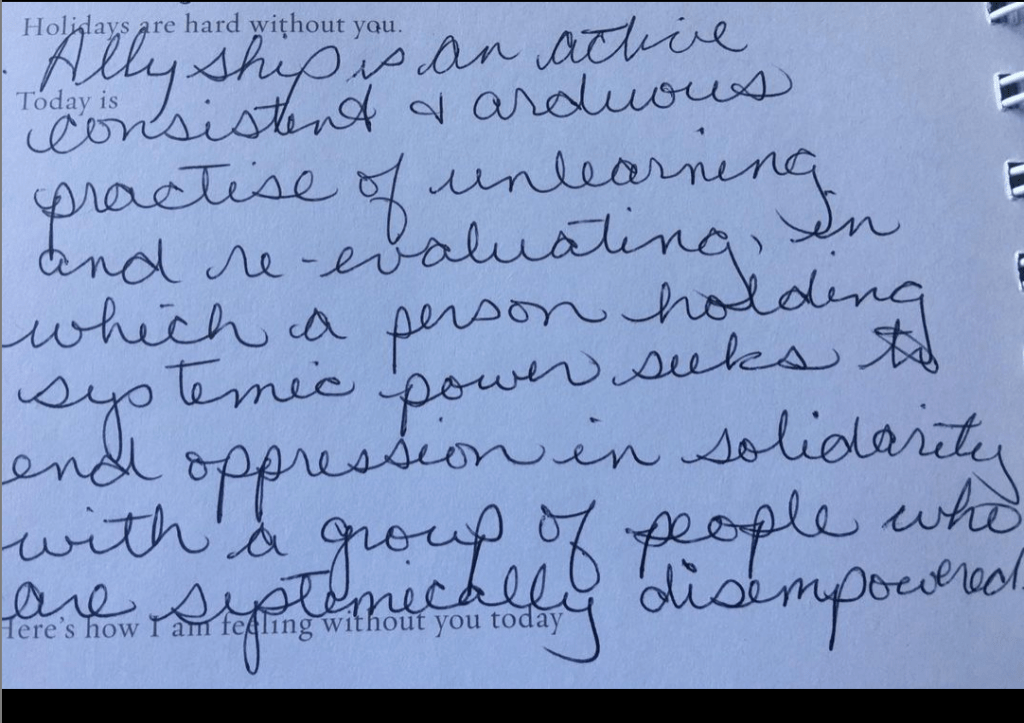 Holidays are hard without you.
Allyship is an active
Today is
consistent & arduous
practise of unlearning
and re-evaluating, in
which a person holding
systemic power seeks to
end oppression in solidarity
with a group of people who
are systemically disempowered.
Here's how I am feeling without you today